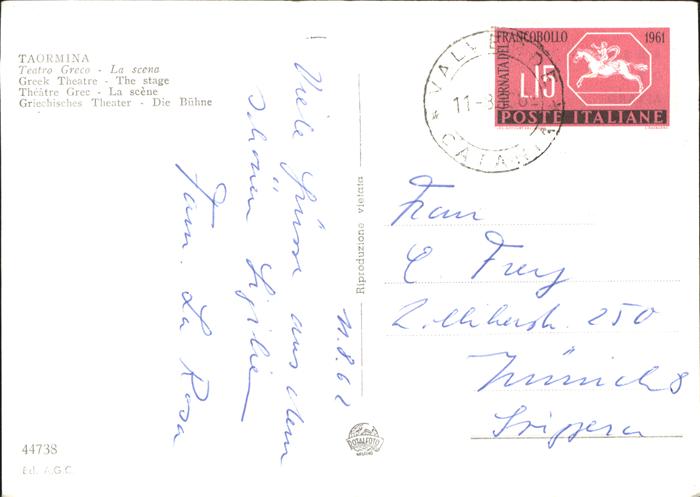 TAORMINA
Teatro Greco - La scena
Greek Theatre - The stage
Théâtre Grec - La scène
Griechisches Theater - Die Bühne
Viele Grüsse aus dem
schönen Sizilien
Fam. La Rosa
11.8.62
Riproduzione vietata
44738
Ed. A.G.C.
GIORNATA DEL FRANCOBOLLO 1961
L.15
POSTE ITALIANE
11-8
CATANIA
Frau
C. Frey
250
Svizzera